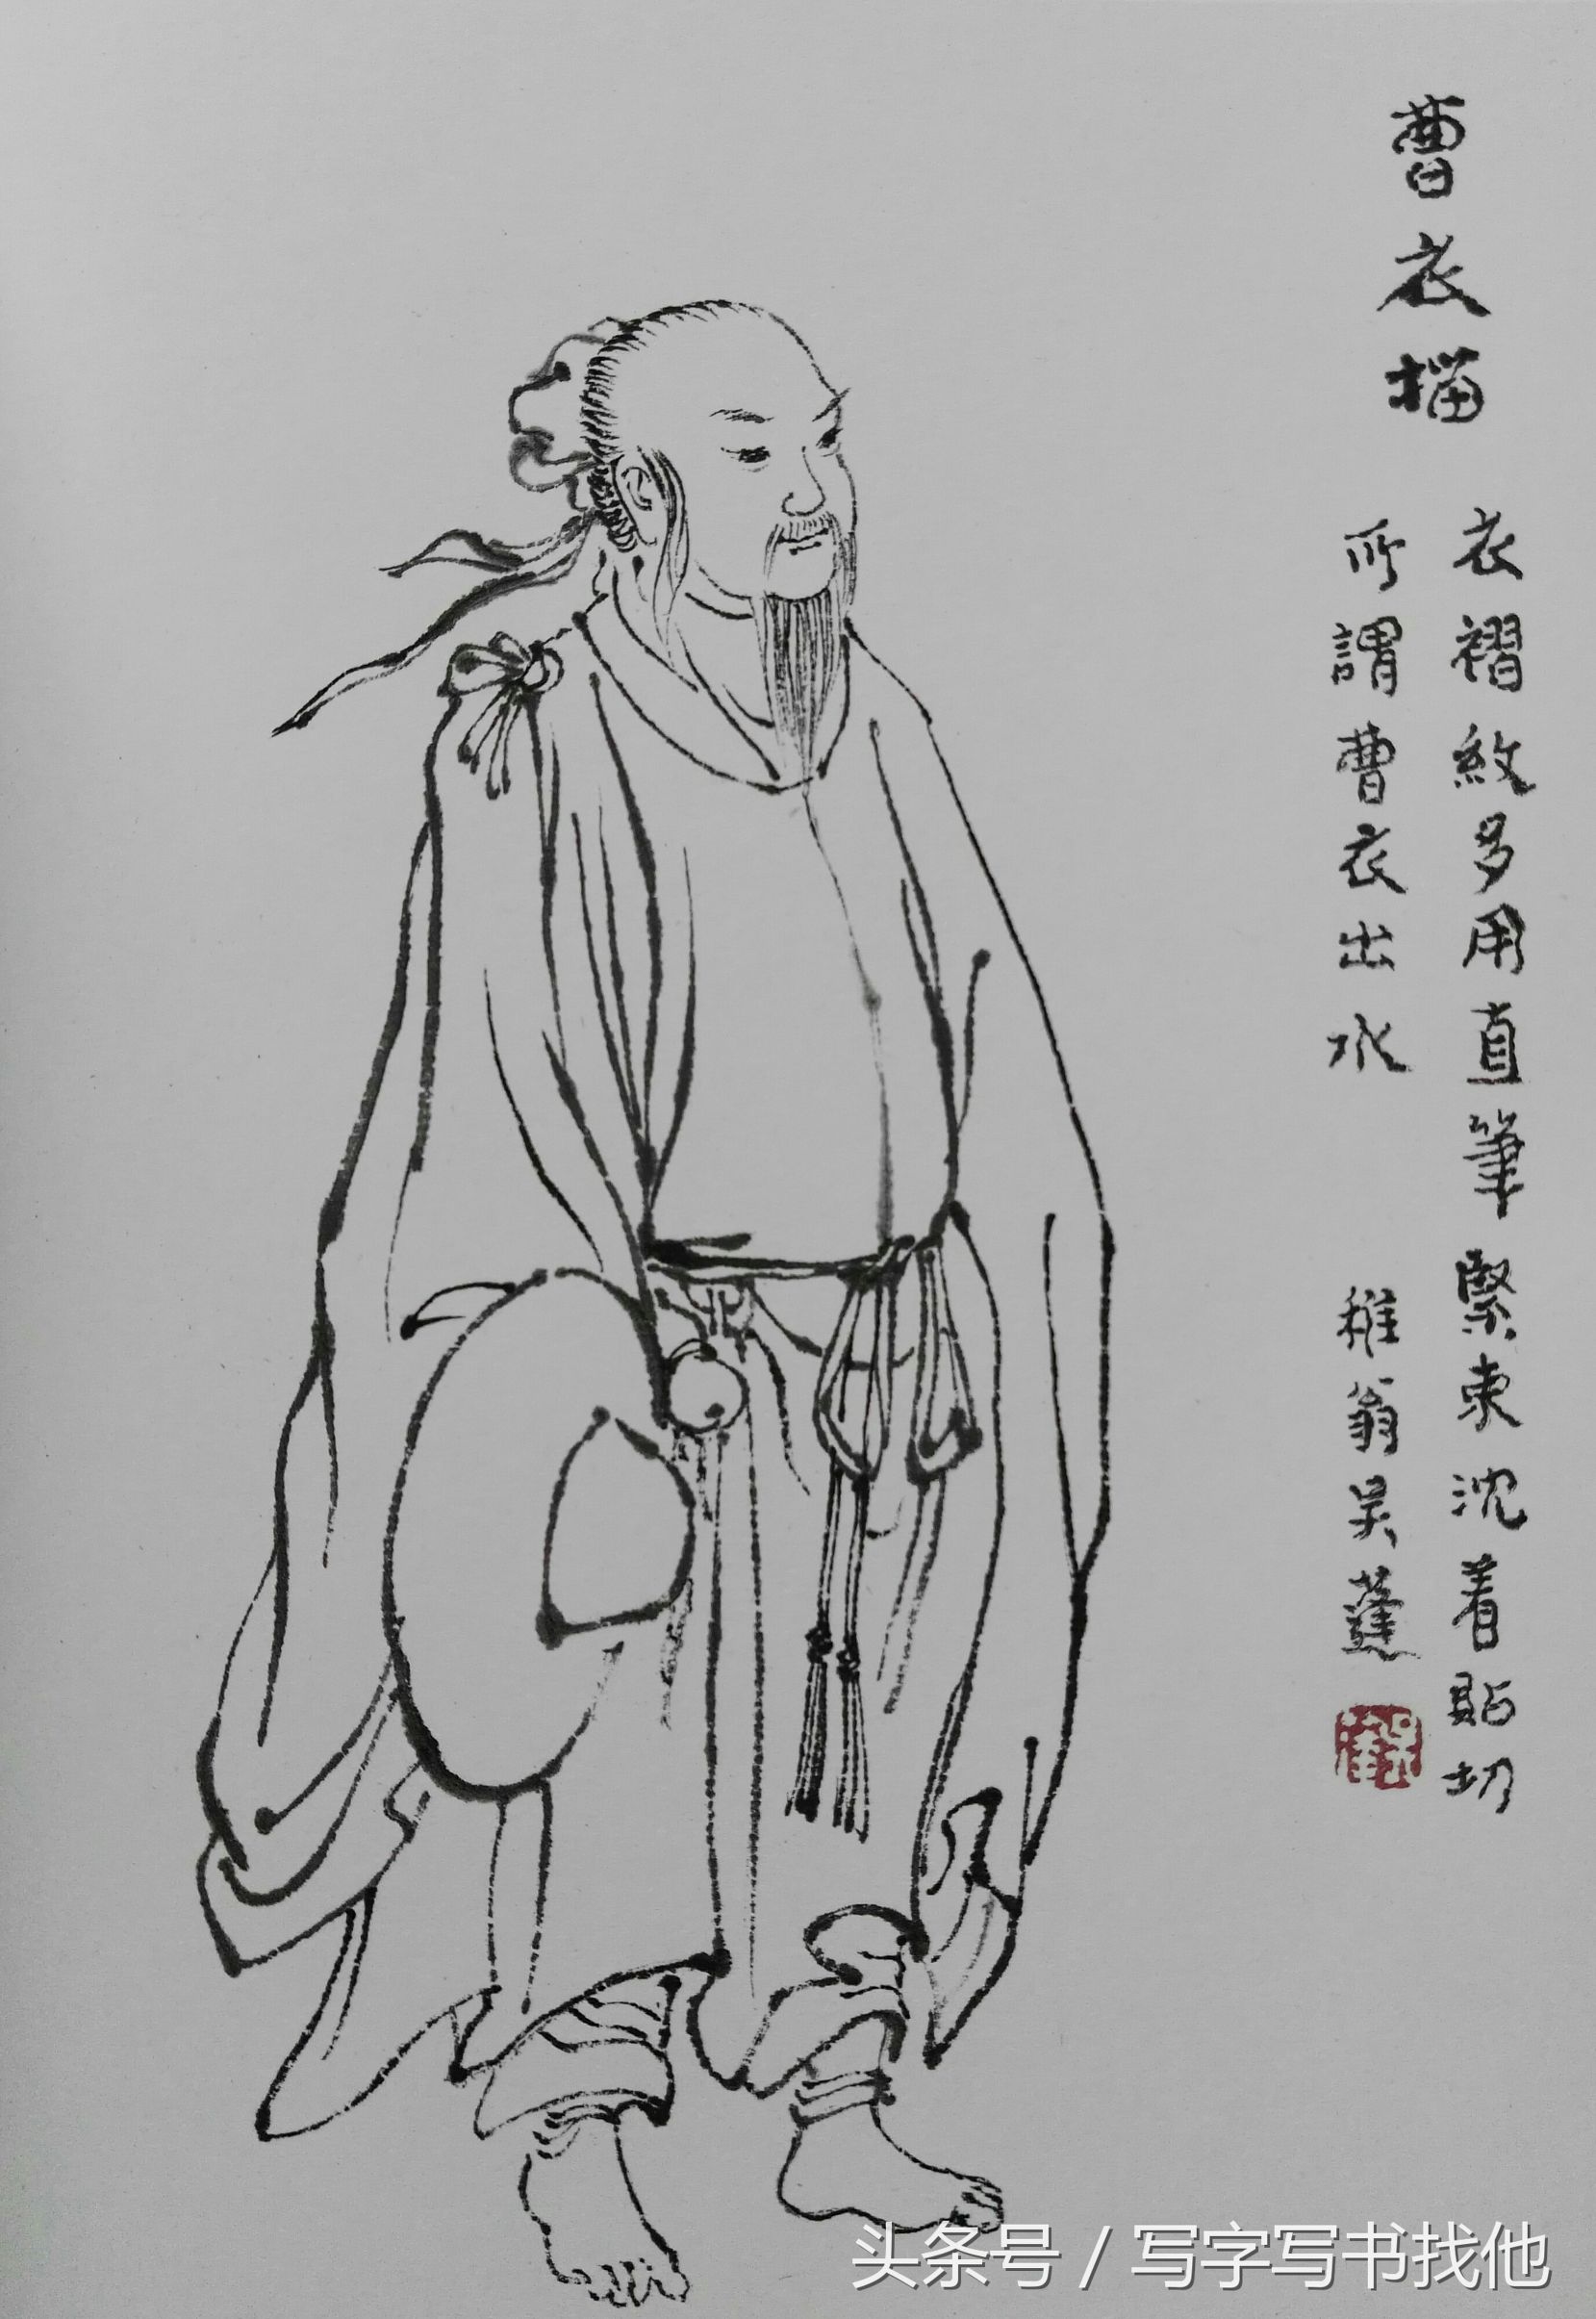 曹衣描
衣褶紋多用直筆緊束沈着貼切
所謂曹衣出水
稚翁吴蓬
头条号 / 写字写书找他